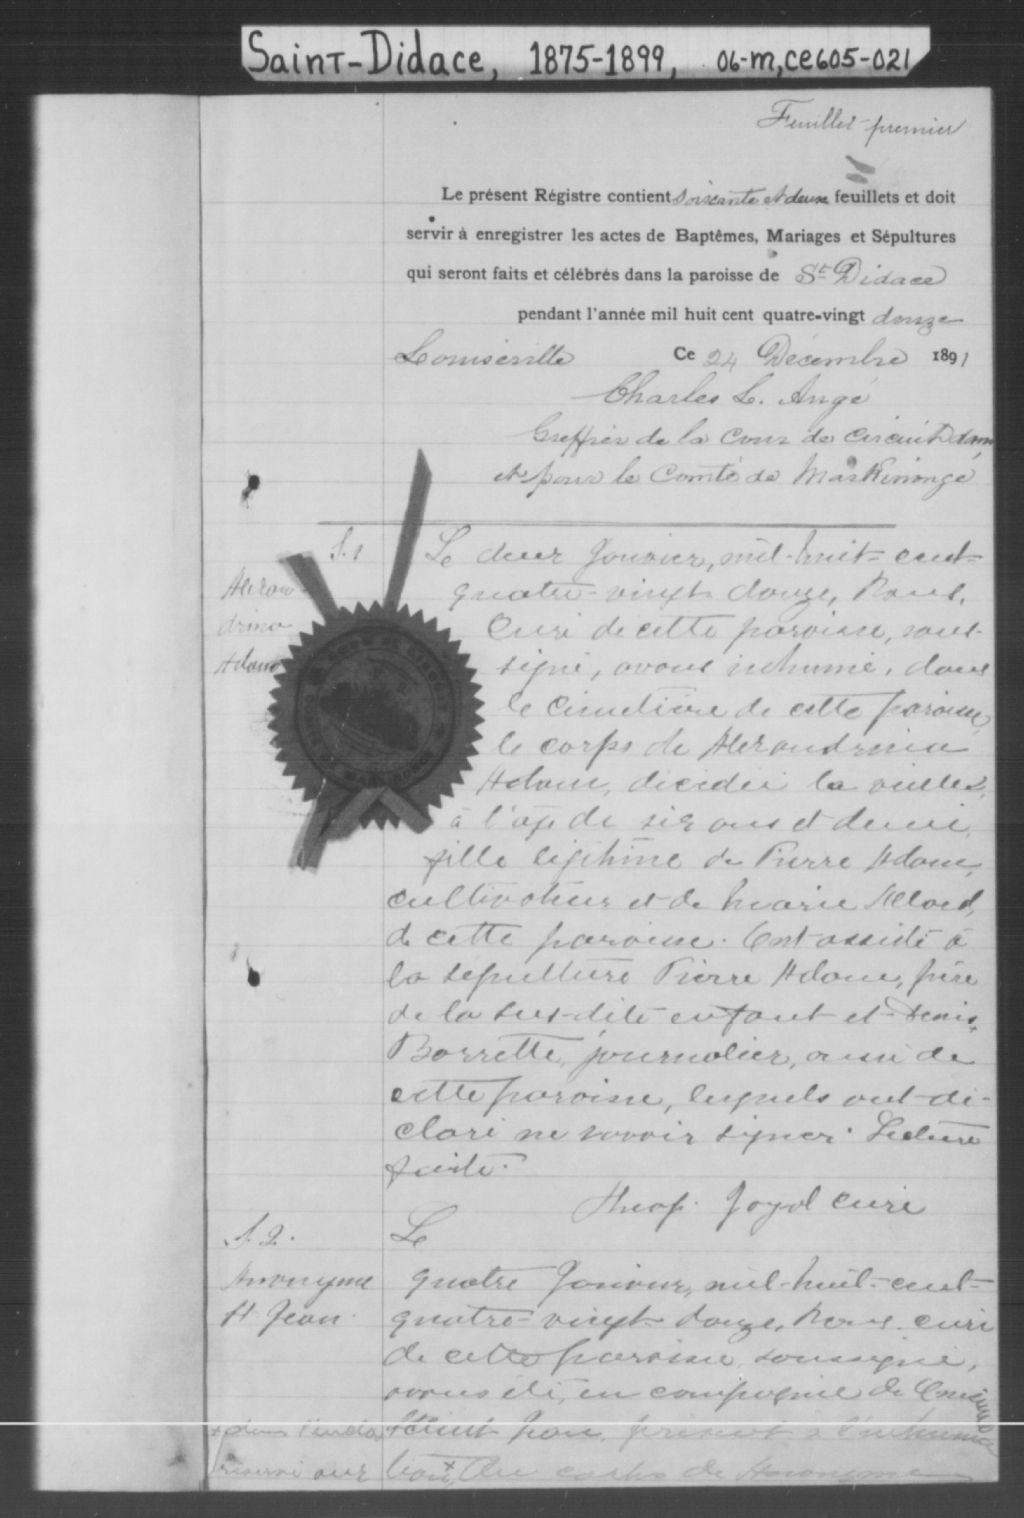 Saint-Didace, 1875-1899, 06-M,CE605-021
Feuillet premier
Le présent Régistre contient soixante et deux feuillets et doit
servir à enregistrer les actes de Baptêmes, Mariages et Sépultures
qui seront faits et célébrés dans la paroisse de St Didace
pendant l'année mil huit cent quatre-vingt douze
Louiseville Ce 24 Décembre 1891
Charles L. Augé
Greffier de la Cour de Circuit dans
et pour le Comté de Maskinongé
S.1
Alexan-
drina
Adam
Le deux Janvier, mil-huit-cent-
quatre-vingt douze, Nous,
Curé de cette paroisse, sous-
signé, avons inhumé, dans
le cimetière de cette paroisse,
le corps de Alexandrina
Adam, décédée la veille,
à l'age de six ans et demi,
fille légitime de Pierre Adam,
cultivateur et de Marie Allard,
de cette paroisse. Ont assisté à
la sépulture Pierre Adam, père
de la sus-dite enfant et Denis
Barrette, journalier, aussi de
cette paroisse, lesquels ont dé-
claré ne savoir signer. Lecture
faite.
Theop. Joyal curé
S.2.
Anonyme
St. Jean.
Le
quatre Janvier, mil-huit-cent-
quatre-vingt douze, Nous curé
de cette paroisse, soussigné,
avons été, en compagnie de
Saint Jean, présent à l'inhuma
tion, du corps de Anonyme
+ dans
réservé aux